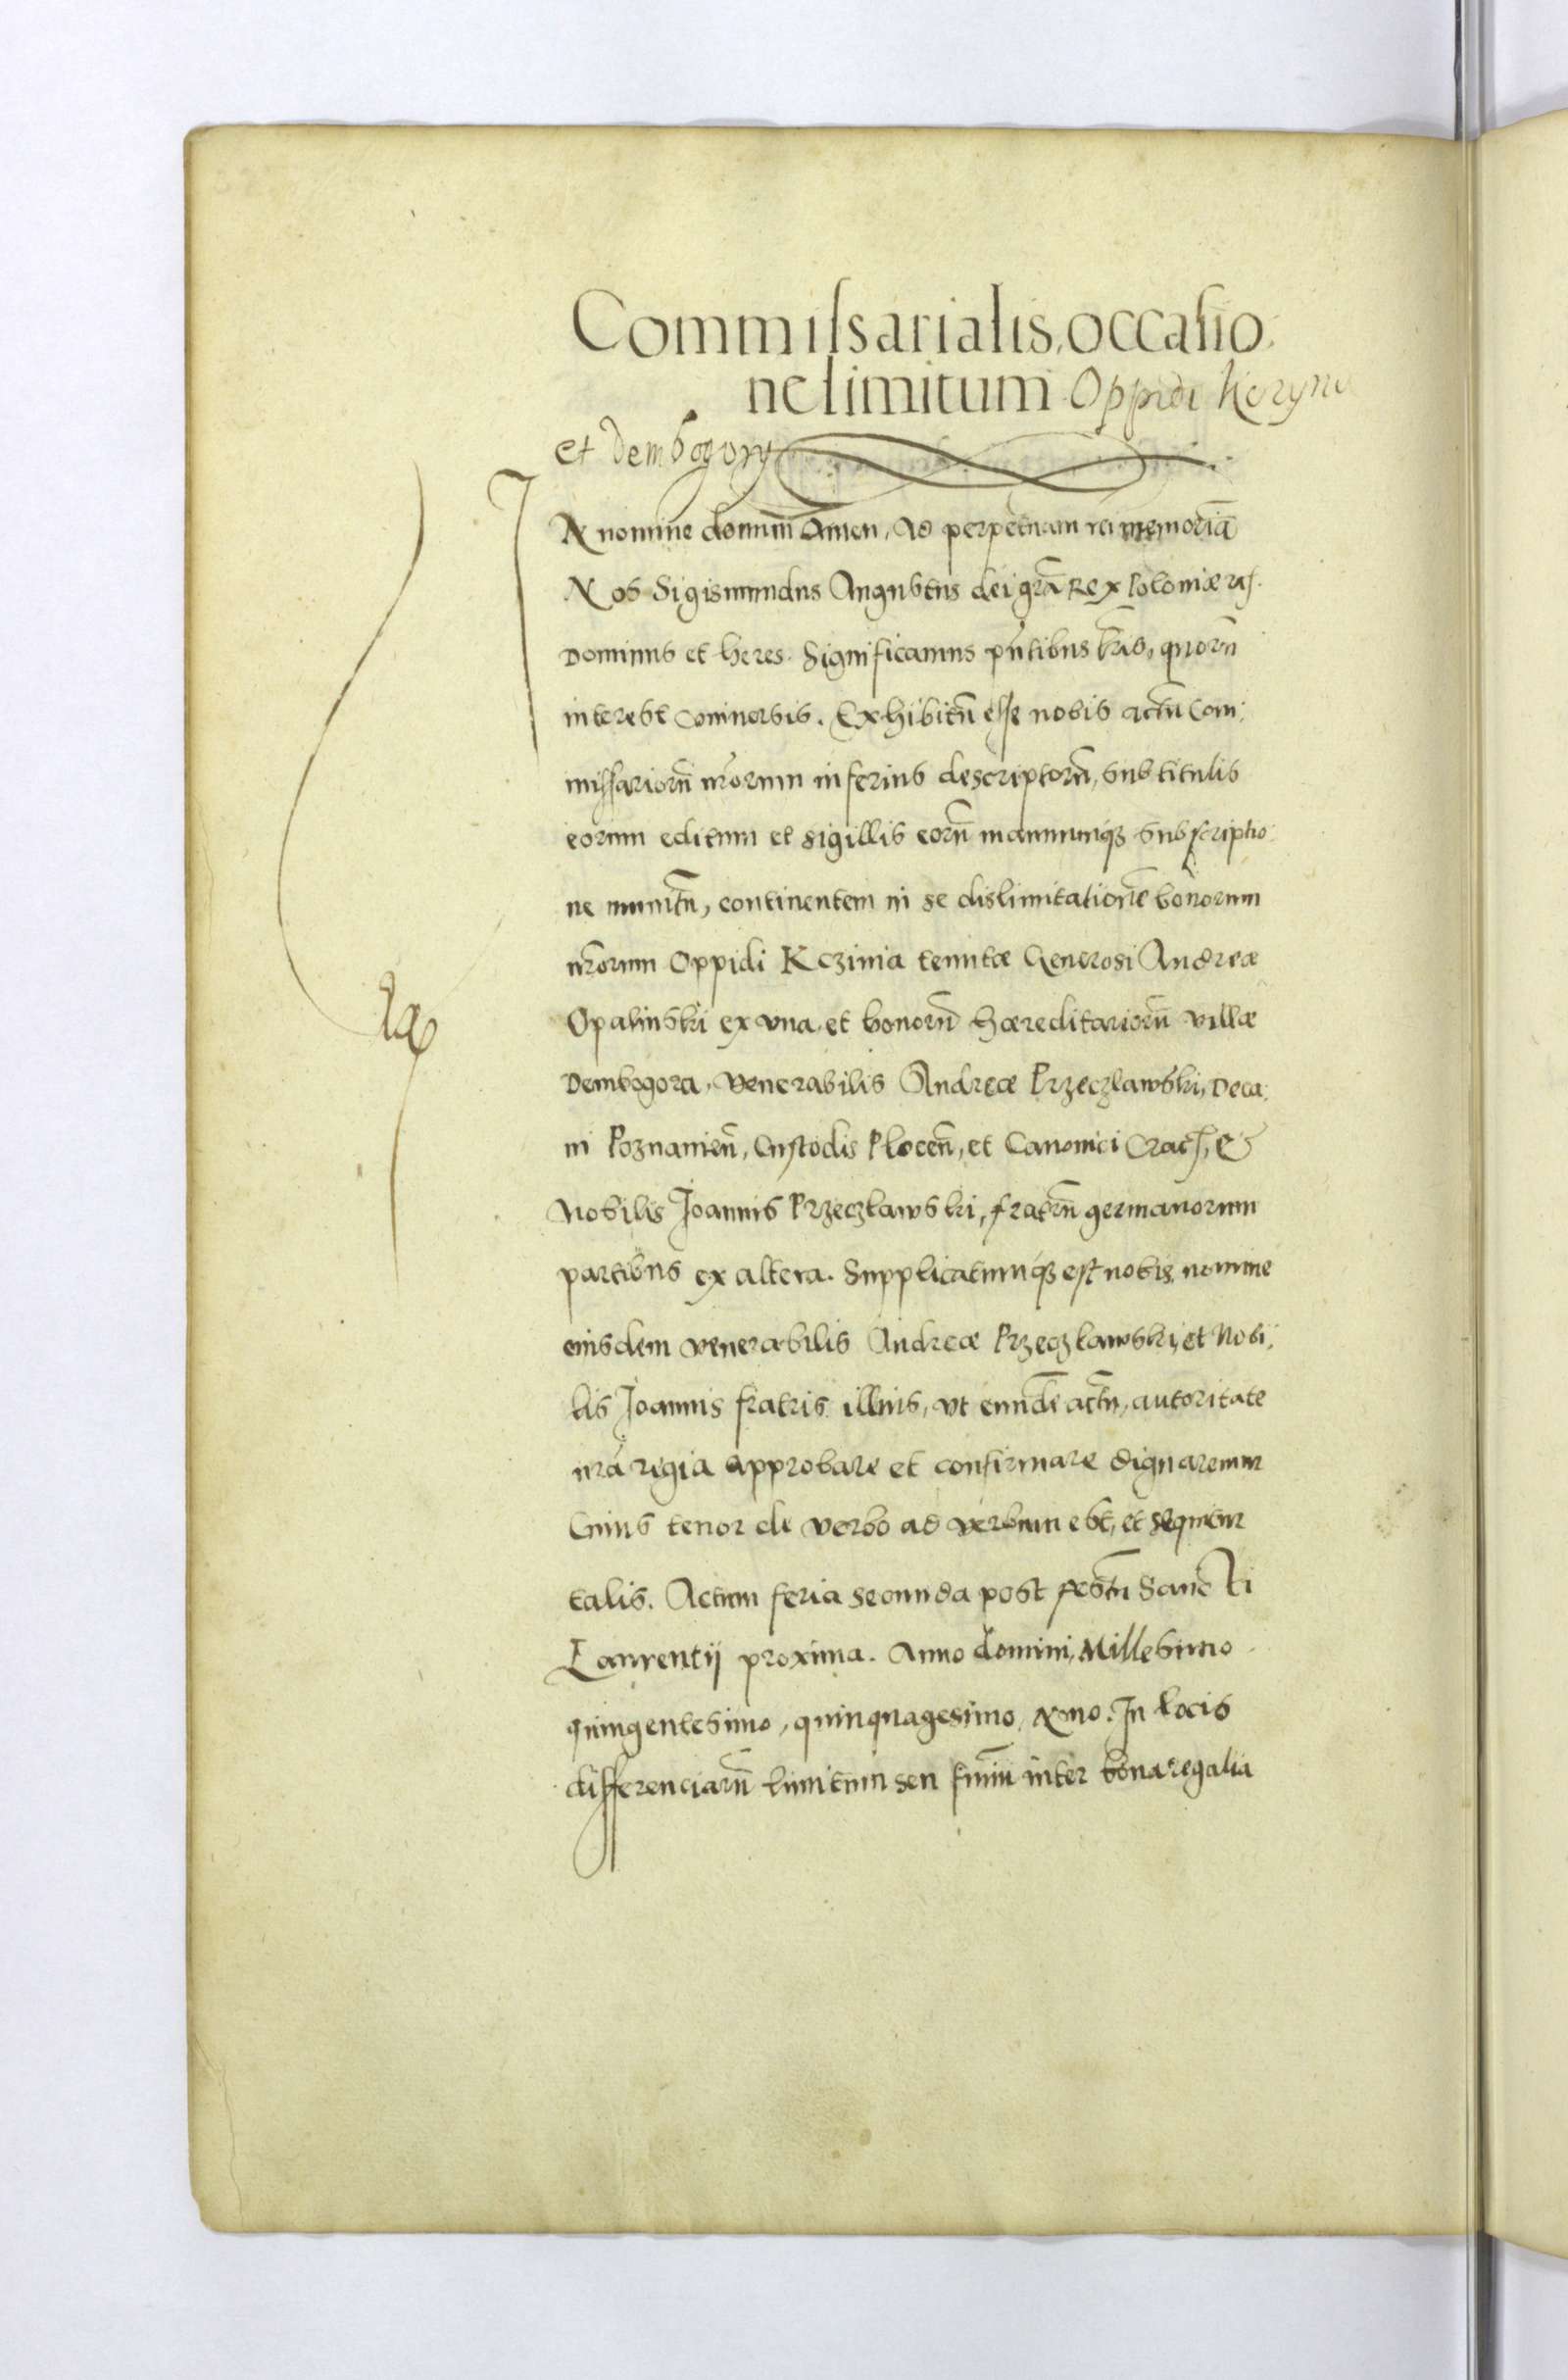 Commissarialis, occasio
ne limitum Oppidi
et Dembogory
IN nomine domini Amen, Ad perpetuam rei memoriā
Nos Sigismundus Augustus dei grā Rex Poloniæ
Dominus et heres. Significamus pn̄tibus lr̄is, quorū
interest vniuersis. Exhibitū esse nobis actū Com
missariorū nr̄orum inferius descriptorū, sub titulis
eorum editum et sigillis eorū manuumqȝ subscriptio
ne munitū, continentem in se dislimitationē bonorum
nr̄orum Oppidi Kczinia tenutæ Generosi Andreæ
Opalinski ex vna, et bonorū hæreditariorū villæ
Dembogora, venerabilis Andreæ Przeczlawski, Deca
ni Poznanieñ, Custodis Ploceñ, et Canonici Crac, &
Nobilis Joannis Przeczlawski, fratrū germanorum
partibus ex altera. Supplicatumqȝ est nobis nomine
eiusdem venerabilis Andreæ Przeczlawski, et Nobi
lis Joannis fratris illius, vt eundē actū, autoritate
nr̄a regia approbare et confirmare dignaremur
Cuius tenor de verbo ad verbum est, et sequitur
talis. Actum feria secunda post festū Sancti
Laurentij proxima. Anno domini, Millesimo
quingentesimo, quinquagesimo, In locis
differenciarū limitum seu finiū inter bona regalia